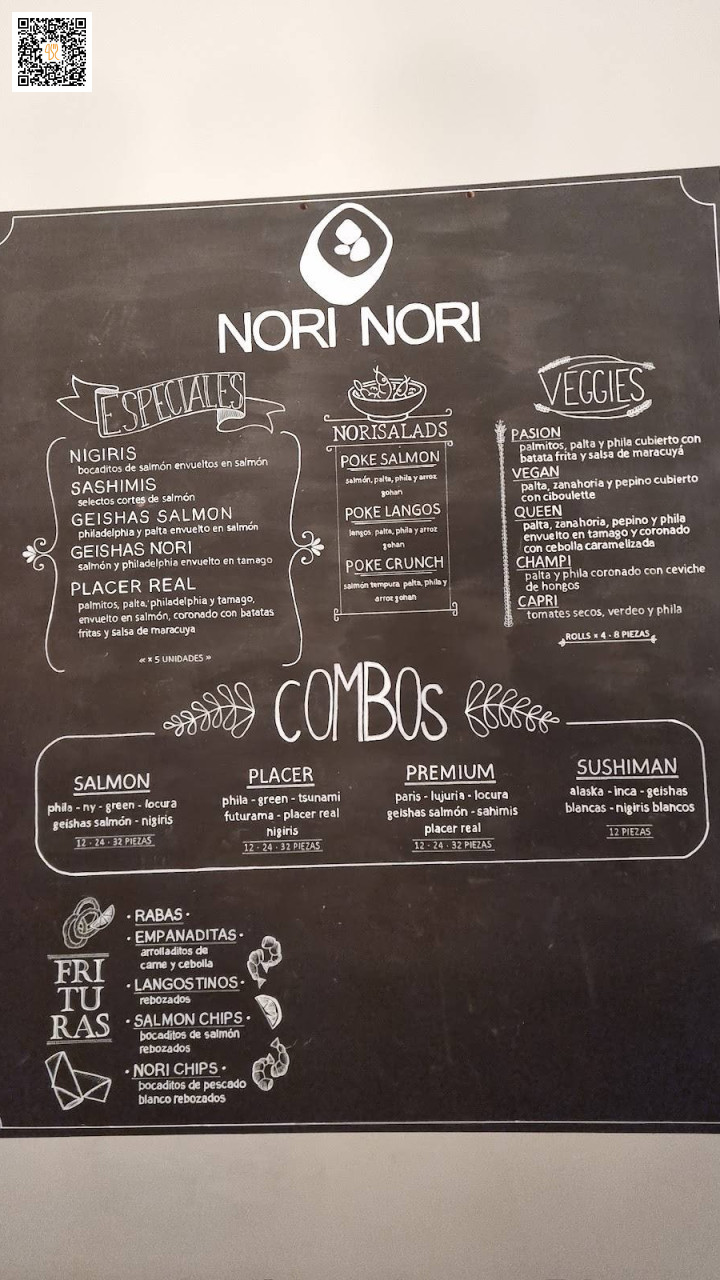 NORI NORI
ESPECIALES
NIGIRIS
bocaditos de salmón envueltos en salmón
SASHIMIS
selectos cortes de salmón
GEISHAS SALMON
philadelphia y palta envuelto en salmón
GEISHAS NORI
salmón y philadelphia envuelto en tamago
PLACER REAL
palmitos, palta, philadelphia y tamago,
envuelto en salmón, coronado con batatas
fritas y salsa de maracuya
« x 5 UNIDADES »
NORISALADS
POKE SALMON
salmón, palta, phila y arroz
gohan
POKE LANGOS
langos, palta, phila y arroz
gohan
POKE CRUNCH
salmón tempura, palta, phila y
arroz gohan
VEGGIES
PASION
palmitos, palta y phila cubierto con
batata frita y salsa de maracuyá
VEGAN
palta, zanahoria y pepino cubierto
con ciboulette
QUEEN
palta, zanahoria, pepino y phila
envuelto en tamago y coronado
con cebolla caramelizada
CHAMPI
palta y phila coronado con ceviche
de hongos
CAPRI
tomates secos, verdeo y phila
ROLLS x 4 - 8 PIEZAS
COMBOS
SALMON
phila - ny - green - locura
geishas salmón - nigiris
12 - 24 - 32 PIEZAS
PLACER
phila - green - tsunami
futurama - placer real
nigiris
12 - 24 - 32 PIEZAS
PREMIUM
paris - lujuria - locura
geishas salmón - sahimis
placer real
12 - 24 - 32 PIEZAS
SUSHIMAN
alaska - inca - geishas
blancas - nigiris blancos
12 PIEZAS
FRI
TU
RAS
• RABAS •
• EMPANADITAS •
arrolladitos de
carne y cebolla
• LANGOSTINOS •
rebozados
• SALMON CHIPS •
bocaditos de salmón
rebozados
• NORI CHIPS •
bocaditos de pescado
blanco rebozados